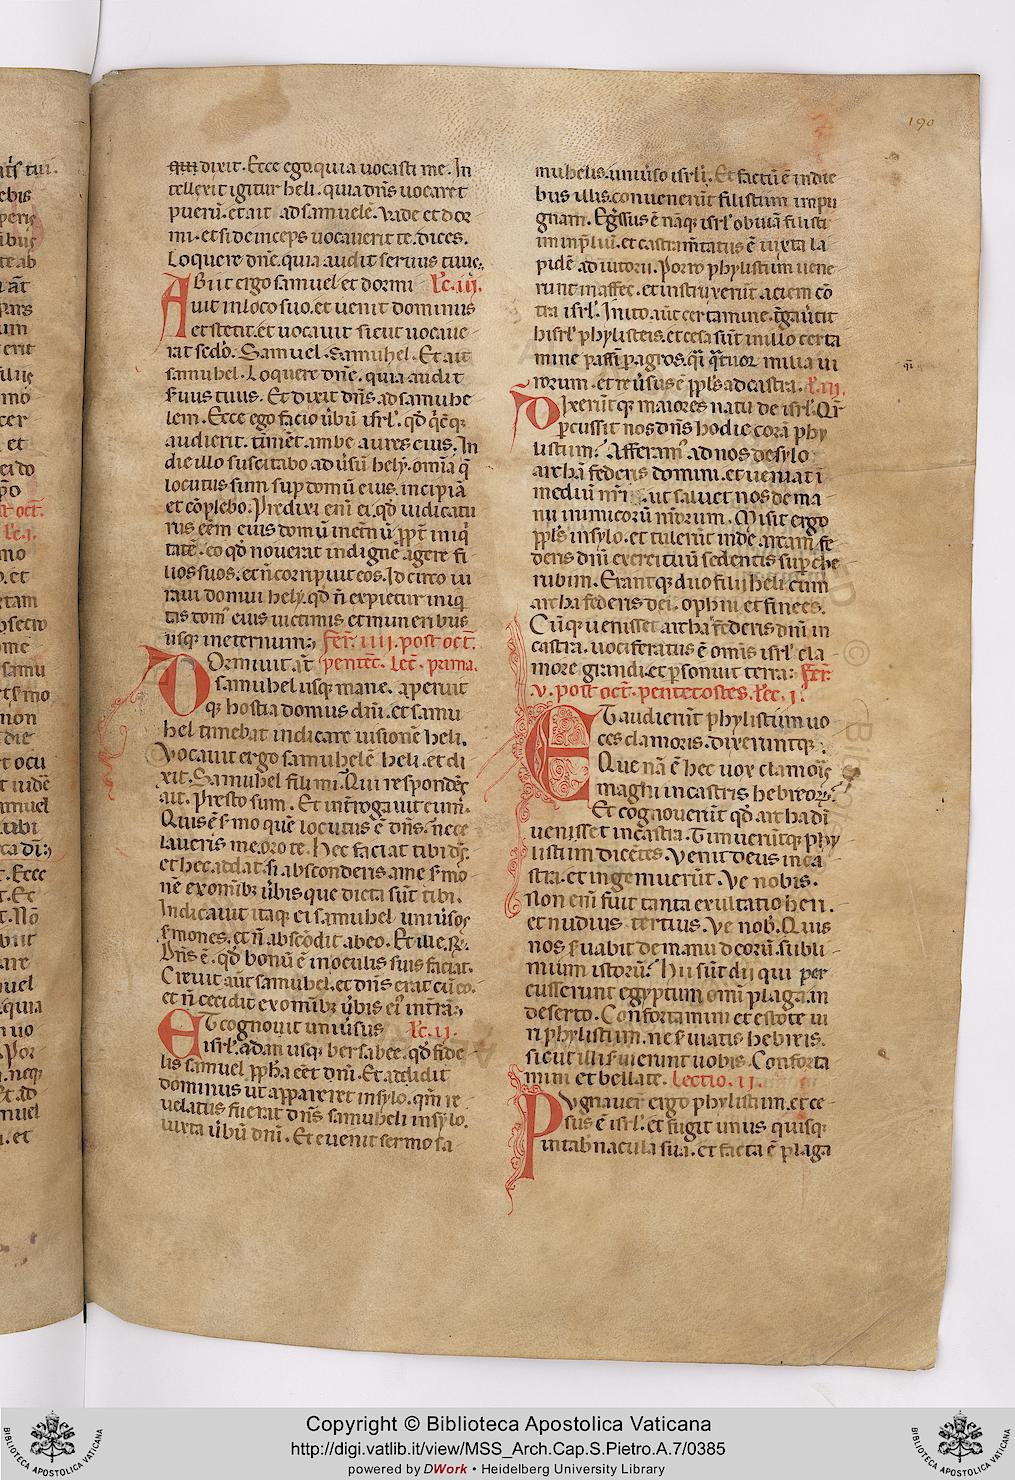 190
qui dixit. Ecce ego. quia uocasti me. In
tellexit igitur heli. quia dns̄ uocaret
puerū. et ait ad samuelē. Vade et dor
mi. et si deinceps uocauerit te. dices.
Loquere dnē. quia audit seruus tuus.
ABiit ergo samuel et dormi Lc̄. iii.
uit in loco suo. et uenit dominus
et stetit. et uocauit sicut uocaue
rat scdo. Samuel. Samuhel. Et ait
samuhel. Loquere dnē. quia audit
seruus tuus. Et dixit dns̄ ad samuhe
lem. Ecce ego facio ūbū isrl̄. qd̄ qicūq;
audierit. tinnēt ambe aures eius. In
die illo suscitabo aduersū hely. omīa q̄
locutus sum sup domū eius. incipiā
et cōplebo. Predixi enī ei. qd̄ iudicatu
rus eēm eius domū inetnū. ppt iniq
tatē. eo qd̄ nouerat indigne agere fi
lios suos. et n̄ corripuit eos. Id circo iu
raui domui hely. qd̄ n̄ expietur iniq
tas dom' eius uictimis et muneribus
usq; in eternum; fer̄. iiii. post oct̄.
DOrmiuit at̄ pentēc̄. Lec̄. prima.
samuhel usq; mane. aperuit
q; hostia domus dnī. et samu
hel timebat indicare uisionē heli.
Vocauit ergo samuhelē heli. et di
xit. Samuhel fili mi. Qui respondēs
ait. Presto sum. Et int̄rogauit eum.
Quis ē smo quē locutus ē dns̄. ne ce
laueris me. oro te. Hec faciat tibi ds̄.
et hec addat. si absconderis a me smo
nē ex omīb; ūbis que dicta sūt tibi.
Indicauit itaq; ei samuhel uniūsos
smones. et n̄ abscōdit ab eo. Et ille. R̄.
Dns̄ ē. qd̄ bonū ē in oculis suis faciat.
Creuit aūt samuhel. et dns̄ erat cū eo.
et n̄ cecidit ex omīb; ūbis ei' in terrā;
ET cognouit uniūsus Lc̄. ii.
isrl̄. a dan usq; bersabee. qd̄ fide
lis samuel ppha eēt dnī. Et addidit
dominus ut appareret in sylo. qm̄ re
uelatus fuerat dns̄ samuheli in sylo.
iuxta ūbū dnī. Et euenit sermo sa
muhelis. uniūso isrlī. Et factū ē in die
bus illis. conuenerūt filistiim in pu
gnam. Egssus ē nāq; isrl̄ obuiā filisti
im in pliū. et castrāmtatus ē iuxta la
pidē adiutorii. Porro phylistiim uene
runt in affec. et instruxerūt aciem cō
tra isrl̄. Inito aūt certamine. tga uertit
hisrl̄ phylisteis. et cesa sūt in illo certa
mine passī p agros. qi qtuor milia ui
rorum. et reūsus ē ppls̄ ad castra. Lc̄. iii.
DIxerūtq; maiores natu de isrl̄. Qr̄
pcussit nos dns̄ hodie corā phy
listiim? Afferam' ad nos de sylo
archā federis domini. et ueniat ī
mediū nrī. ut saluet nos de ma
nu inimicorū nr̄orum. Misit ergo
ppls̄ in sylo. et tulerūt inde arcam fe
deris dnī exercituū sedentis sup che
rubim. Erantq; duo filii heli cum
archa federis dei. ophni et finees.
Cūq; uenisset archa federis dnī in
castra. uociferatus ē omīs isrl̄ cla
more grandi. et psonuit terra; fer̄.
v. post oct̄. pentecostes. Lec̄. i.
ET audierūt phylistiim uo
ces clamoris. dixeruntq;.
Que nā ē hec uox clamoīs
magni in castris hebreor;?
Et cognouerūt qd̄ archa dnī
uenisset in castra. Timuerūtq; phy
listiim dicētes. Venit deus in ca
stra. et ingemuerūt. Ve nobis.
Non enī fuit tanta exultatio heri.
et nudius tertius. Ve nob. Quis
nos suabit de manu deorū subli
mium istorū? hii sūt dii qui per
cusserunt egyptum omī plaga. in
deserto. Confortamini et estote ui
ri phylistiim. ne suiatis hebreis.
sicut illi suierunt uobis. Conforta
mini et bellate. Lectio. ii.
PVgnauer ergo phylistiim. et ce
sus ē isrl̄. et fugit unus quisq;
in tabnacula sua. et facta ē plaga
Copyright © Biblioteca Apostolica Vaticana
http://digi.vatlib.it/view/MSS_Arch.Cap.S.Pietro.A.7/0385
powered by DWork • Heidelberg University Library
BIBLIOTECA APOSTOLICA VATICANA
BIBLIOTECA APOSTOLICA VATICANA